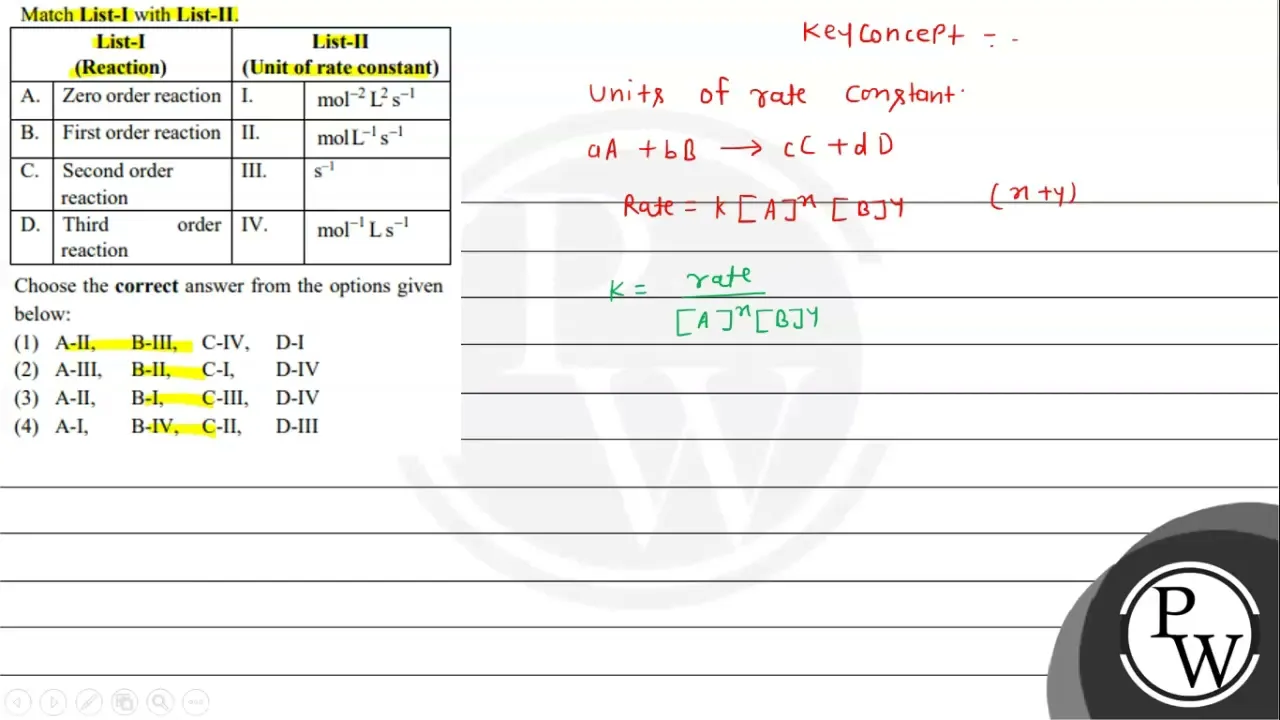 Match List-I with List-II.
List-I (Reaction) List-II (Unit of rate constant)
A. Zero order reaction I. mol⁻² L² s⁻¹
B. First order reaction II. mol L⁻¹ s⁻¹
C. Second order reaction III. s⁻¹
D. Third order reaction IV. mol⁻¹ L s⁻¹
Choose the correct answer from the options given
below:
(1) A-II, B-III, C-IV, D-I
(2) A-III, B-II, C-I, D-IV
(3) A-II, B-I, C-III, D-IV
(4) A-I, B-IV, C-II, D-III
Key Concept :-
Units of rate constant.
aA + bB → cC + dD
Rate = K [A]ˣ [B]ʸ (x+y)
K = rate / [A]ˣ [B]ʸ
PW